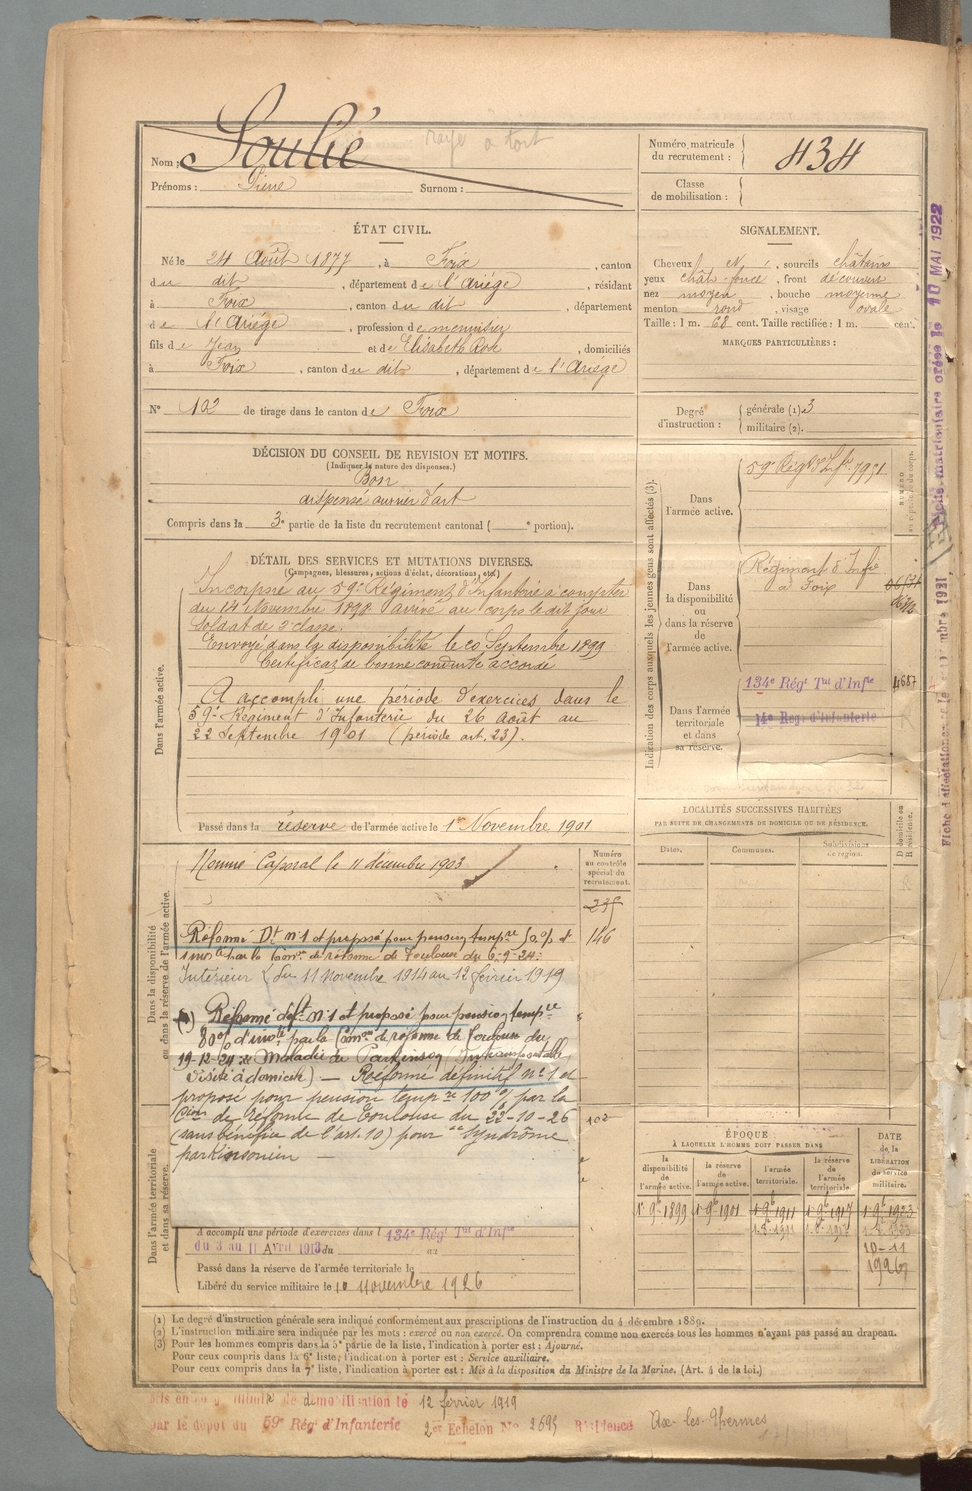 Nom : Soulié
rayé à tort
Prénoms : Pierre Surnom :
Numéro matricule du recrutement : 434
Classe de mobilisation :
ÉTAT CIVIL.
Né le 24 Août 1877, à Foix, canton
du dit, département de l'Ariége, résidant
à Foix, canton du dit, département
de l'Ariége, profession de menuisier
fils de Jean et de Elisabeth, domiciliés
à Foix, canton du dit, département de l'Ariége
N° 102 de tirage dans le canton de Foix
SIGNALEMENT.
Cheveux N, sourcils châtains
yeux chât-foncé, front découvert
nez moyen, bouche moyenne
menton rond, visage ovale
Taille : 1 m. 68 cent. Taille rectifiée : 1 m. cent.
MARQUES PARTICULIÈRES :
Degré d'instruction : générale (1) 3
militaire (2).
DÉCISION DU CONSEIL DE REVISION ET MOTIFS.
(Indiquer la nature des dispenses.)
Bon
dispensé ouvrier d'art
Compris dans la 3e partie de la liste du recrutement cantonal ( e portion).
DÉTAIL DES SERVICES ET MUTATIONS DIVERSES.
(Campagnes, blessures, actions d'éclat, décorations, etc.)
Dans l'armée active.
Incorporé au 59e Régiment d'Infanterie à compter
du 14 Novembre 1898 arrivé au corps le dit jour
Soldat de 2e classe.
Envoyé dans la disponibilité le 20 Septembre 1899
Certificat de bonne conduite accordé
A accompli une période d'exercices dans le
59e Régiment d'Infanterie du 26 août au
22 Septembre 1901 (période art. 23).
Passé dans la réserve de l'armée active le 1er Novembre 1901
Indication des corps auxquels les jeunes gens sont affectés (3).
Dans l'armée active.
59e Régt d'Infie 7971
NUMÉRO
Dans la disponibilité ou dans la réserve de l'armée active.
Régiment d'Infie
à Foix
Dans l'armée territoriale et dans sa réserve.
134e Régt Tal d'Infie
4687
14e Regt d'Infanterie
LOCALITÉS SUCCESSIVES HABITÉES
PAR SUITE DE CHANGEMENTS DE DOMICILE OU DE RÉSIDENCE.
Dates. Communes. Subdivisions de région.
D domicile ou R résidence.
Dans la disponibilité ou dans la réserve de l'armée active.
Nommé Caporal le 11 décembre 1903
Numéro au contrôle spécial du recrutement.
235
146
Réformé Dt n°1 et proposé pour pension tempre
par la Comon de réforme de Toulouse du 6-9-24.
Intérieur du 11 novembre 1914 au 12 février 1919
Réformé deft n°1 et proposé pour pension tempre
80% d'invté par la Comon de réforme de Toulouse du
19-12-24 Maladie de Parkinson Intransportable
visité à domicile) — Réformé définitif n°1 et
proposé pour pension tempre 100% par la
Con de réforme de Toulouse du 22-10-26
(sans bénéfice de l'art. 10) pour "Syndrôme
parkinsonien —
Dans l'armée territoriale et dans sa réserve.
A accompli une période d'exercices dans l 134e Régt Tal d'Infie
du 3 au 11 Avril 1913 du au
Passé dans la réserve de l'armée territoriale le
Libéré du service militaire le 10 novembre 1926
ÉPOQUE
A LAQUELLE L'HOMME DOIT PASSER DANS
DATE de la LIBÉRATION du service militaire.
la disponibilité de l'armée active. la réserve de l'armée active. l'armée territoriale. la réserve de l'armée territoriale.
1er 9b 1899 1er 9b 1901 1er 9b 1911 1er 9b 1917 1er 9b 1923
10-11
1926
(1) Le degré d'instruction générale sera indiqué conformément aux prescriptions de l'instruction du 4 décembre 1889.
(2) L'instruction militaire sera indiquée par les mots : exercé ou non exercé. On comprendra comme non exercés tous les hommes n'ayant pas passé au drapeau.
(3) Pour les hommes compris dans la 5e partie de la liste, l'indication à porter est : Ajourné.
Pour ceux compris dans la 6e liste, l'indication à porter est : Service auxiliaire.
Pour ceux compris dans la 7e liste, l'indication à porter est : Mis à la disposition du Ministre de la Marine. (Art. 4 de la loi.)
Mis en congé illimité de démobilisation le 12 février 1919
par le dépôt du 59e Régt d'Infanterie 2e Echelon No 2695 Résidence Ax-les-Thermes
matriculaire créée le 10 MAI 1922